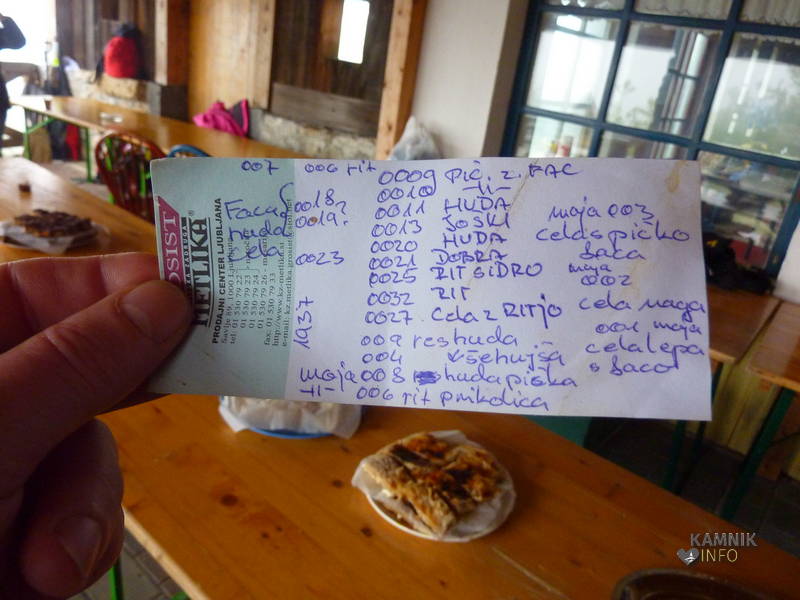 007 006 rit 0009 pič. z. FAC
0018 0010 -11-
0019? 0011 HUDA moja 003
0013 JOŠKI celaspičko
0020 HUDA
0023 0021 DOBRA faca
0025 RIT SIDRO moja 002
0032 RIT
1937 0027. Cela z RITJO cela naga
009 res huda 0001 moja
004 všehujša cela lepa
moja 008 huda pička s faco
-11- 006 rit pmkdica
METLIKA
PRODAJNI CENTER LJUBLJANA
KAMNIK
INFO